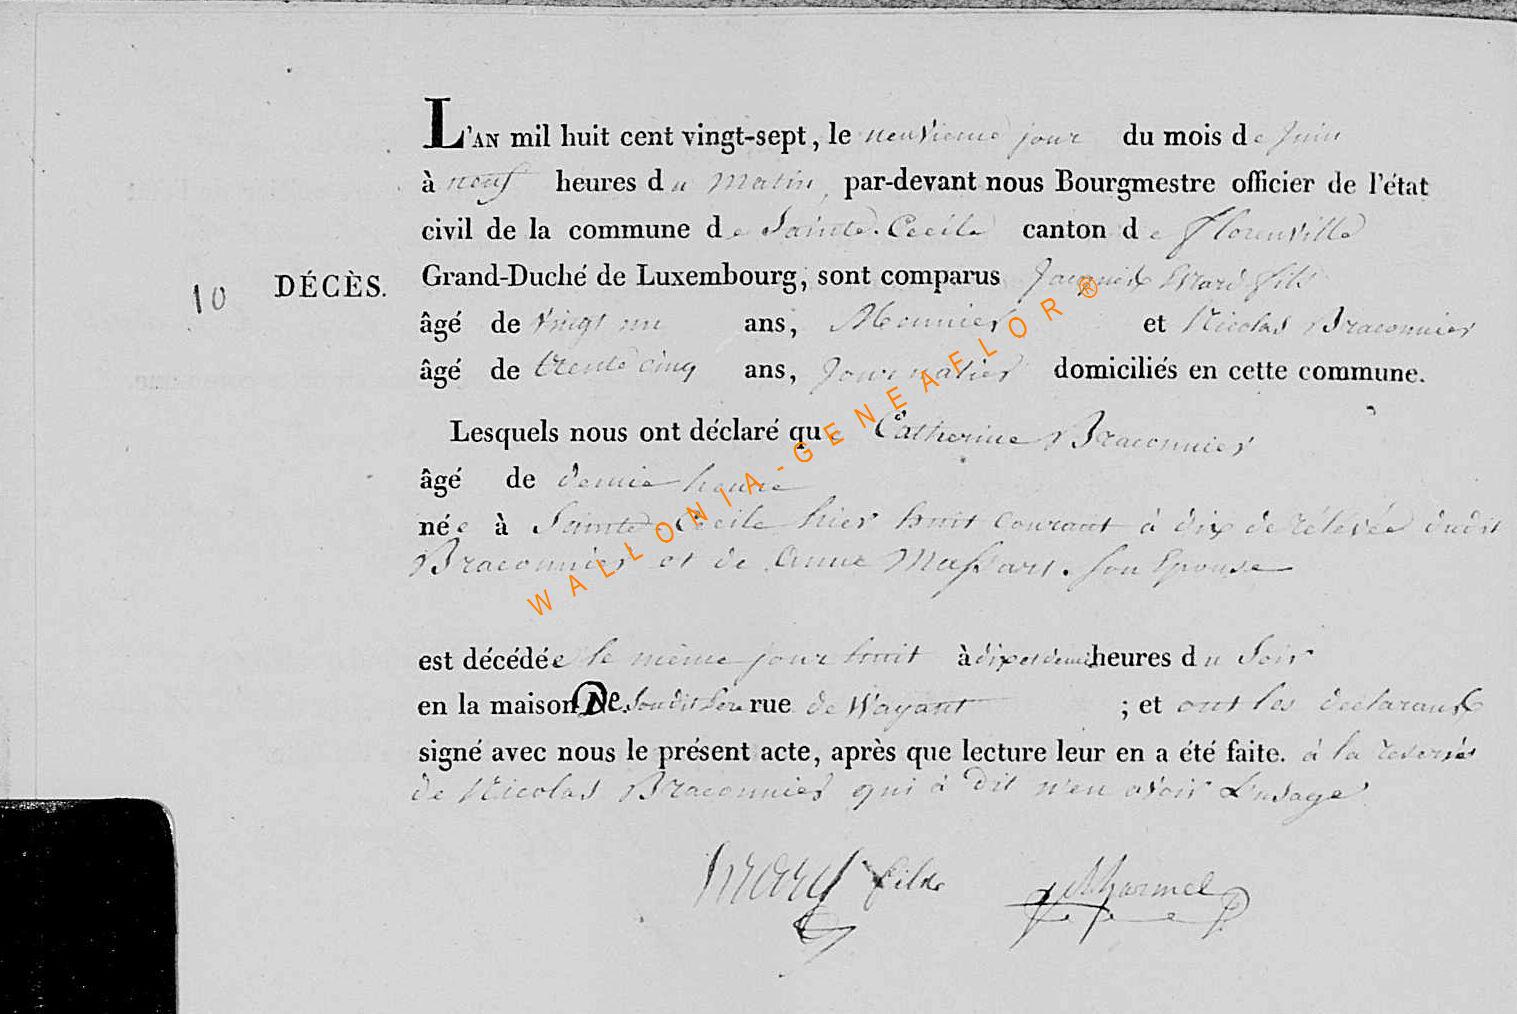 L'AN mil huit cent vingt-sept, le neuvieme jour du mois de Juin
à neuf heures du matin, par-devant nous Bourgmestre officier de l'état
civil de la commune de Sainte-Cecile canton de Florenville
10 DÉCÈS. Grand-Duché de Luxembourg, sont comparus fils
âgé de vingt un ans, Meunier et Nicolas Braconnier
âgé de trente cinq ans, Journalier domiciliés en cette commune.
Lesquels nous ont déclaré que Catherine Braconnier
âgé de demie heure
née à Sainte Cecile hier huit courant à dix de rélévée dudit
Braconnier et de Anne Massart. son Epouse
est décédée le même jour huit à dix et demi heures du Soir
en la maison De. Son dit Pere rue de Wayant ; et ont les déclarants
signé avec nous le présent acte, après que lecture leur en a été faite. à la reserve
de Nicolas Braconnier qui à dit n'en avoir L'usage
WALLONIA-GENEAFLOR®